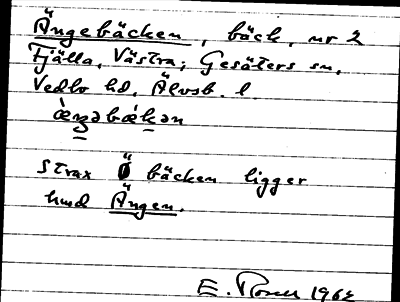 Ängebäcken, bäck, nr 2
Fjälla, Västra; Gesäters sn,
Vedbo hd, Älvsb. l.
æŋəbækən
Strax Ö bäcken ligger
hmd Ängen.
E. 1962